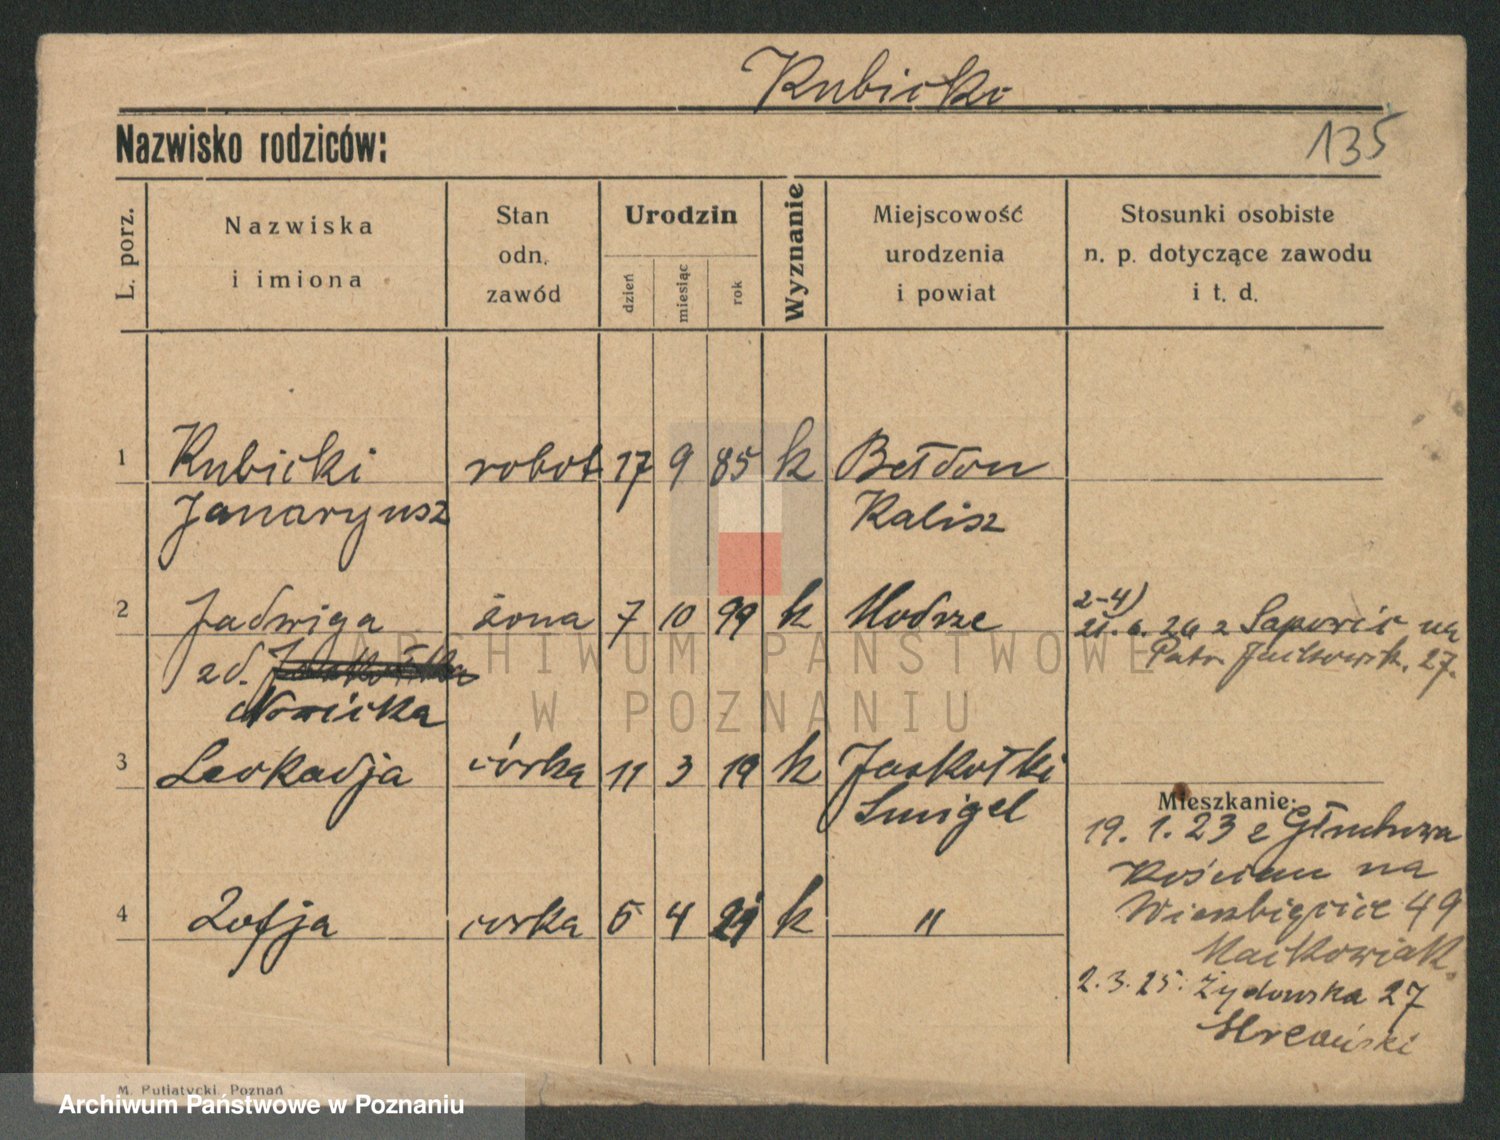 Kubicki
Nazwisko rodziców:
135
L. porz.
Nazwiska
i imiona
Stan
odn.
zawód
Urodzin
dzień
miesiąc
rok
Wyznanie
Miejscowość
urodzenia
i powiat
Stosunki osobiste
n. p. dotyczące zawodu
i t. d.
1 Kubicki robot 17 9 85 k Bełdów
Januaryusz Kalisz
2 Jadwiga żona 7 10 99 k Modrze
zd.
Nowicka
2-4)
21. 6. 24 z Sapowic na
Patr. Jackowsk. 27.
3 Leokadja córka 11 3 19 k Jaskółki
Smigel
Mieszkanie:
19. 1. 23 z Głuchowa
Kościan na
Wierzbięcice 49
Maćkowiak.
4 Zofja córka 5 4 21 k "
2. 3. 25. Żydowska 27
M. Putiatycki, Poznań
ARCHIWUM PAŃSTWOWE
W POZNANIU
Archiwum Państwowe w Poznaniu